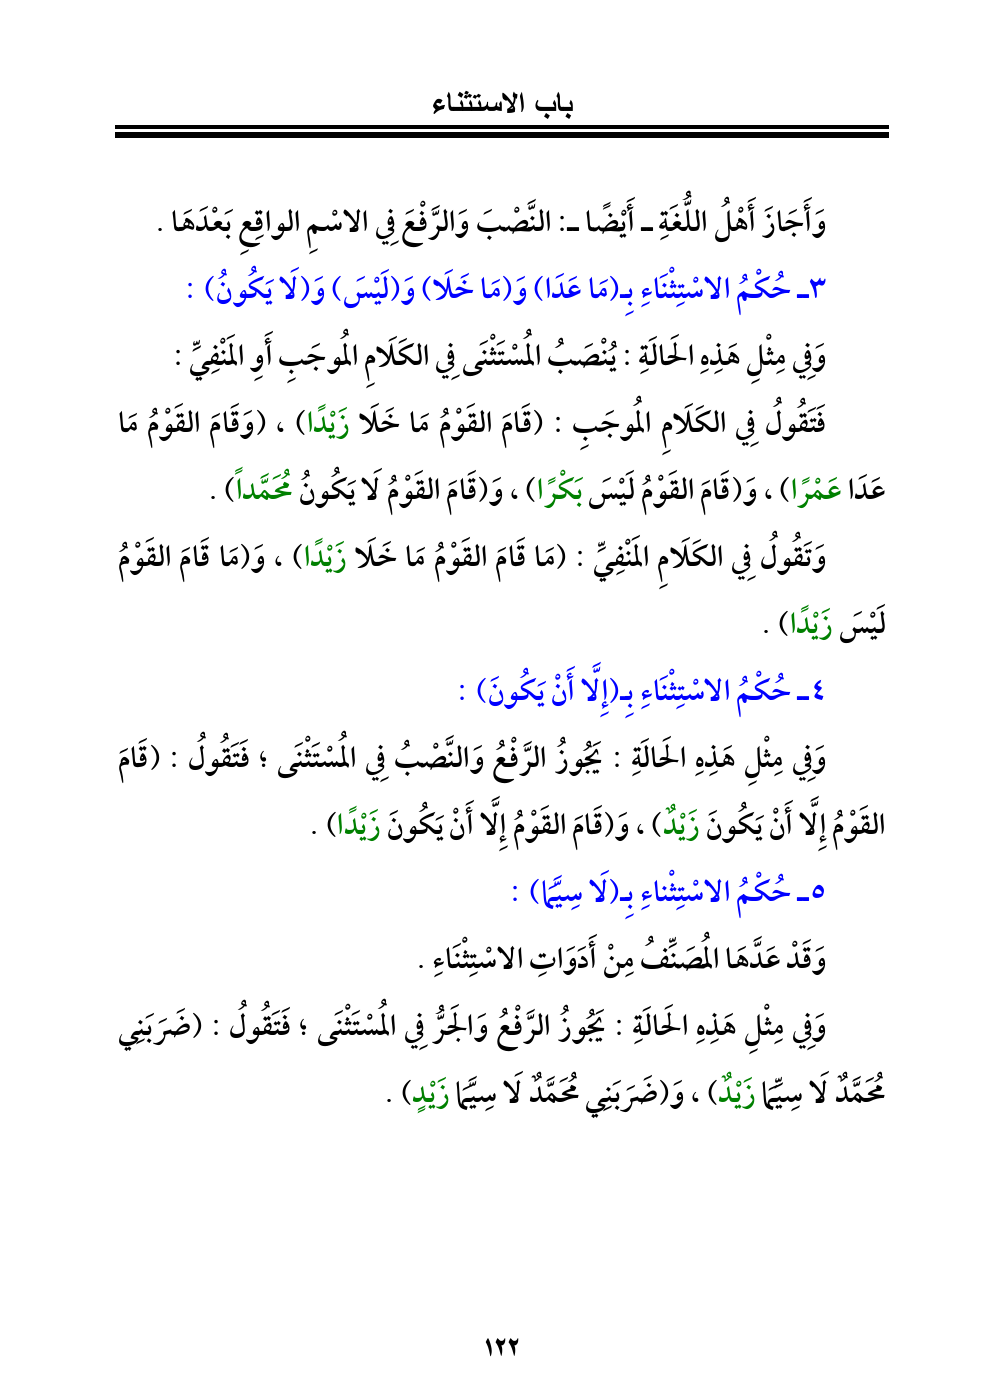 باب الاستثناء
وَأَجَازَ أَهْلُ اللُّغَةِ ـ أَيْضًا ـ: النَّصْبَ وَالرَّفْعَ فِي الاسْمِ الواقِعِ بَعْدَهَا .
٣ـ حُكْمُ الاسْتِثْنَاءِ بِـ(مَا عَدَا) وَ(مَا خَلَا) وَ(لَيْسَ) وَ(لَا يَكُونُ) :
وَفِي مِثْلِ هَذِهِ الحَالَةِ : يُنْصَبُ المُسْتَثْنَى فِي الكَلَامِ المُوجَبِ أَوِ المَنْفِيِّ :
فَتَقُولُ فِي الكَلَامِ المُوجَبِ : (قَامَ القَوْمُ مَا خَلَا زَيْدًا) ، (وَقَامَ القَوْمُ مَا
عَدَا عَمْرًا) ، وَ(قَامَ القَوْمُ لَيْسَ بَكْرًا) ، وَ(قَامَ القَوْمُ لَا يَكُونُ مُحَمَّداً) .
وَتَقُولُ فِي الكَلَامِ المَنْفِيِّ : (مَا قَامَ القَوْمُ مَا خَلَا زَيْدًا) ، وَ(مَا قَامَ القَوْمُ
لَيْسَ زَيْدًا) .
٤ـ حُكْمُ الاسْتِثْنَاءِ بِـ(إِلَّا أَنْ يَكُونَ) :
وَفِي مِثْلِ هَذِهِ الحَالَةِ : يَجُوزُ الرَّفْعُ وَالنَّصْبُ فِي المُسْتَثْنَى ؛ فَتَقُولُ : (قَامَ
القَوْمُ إِلَّا أَنْ يَكُونَ زَيْدٌ) ، وَ(قَامَ القَوْمُ إِلَّا أَنْ يَكُونَ زَيْدًا) .
٥ـ حُكْمُ الاسْتِثْناءِ بِـ(لَا سِيَّمَا) :
وَقَدْ عَدَّهَا المُصَنِّفُ مِنْ أَدَوَاتِ الاسْتِثْنَاءِ .
وَفِي مِثْلِ هَذِهِ الحَالَةِ : يَجُوزُ الرَّفْعُ وَالجَرُّ فِي المُسْتَثْنَى ؛ فَتَقُولُ : (ضَرَبَنِي
مُحَمَّدٌ لَا سِيِّمَا زَيْدٌ) ، وَ(ضَرَبَنِي مُحَمَّدٌ لَا سِيَّمَا زَيْدٍ) .
١٢٢